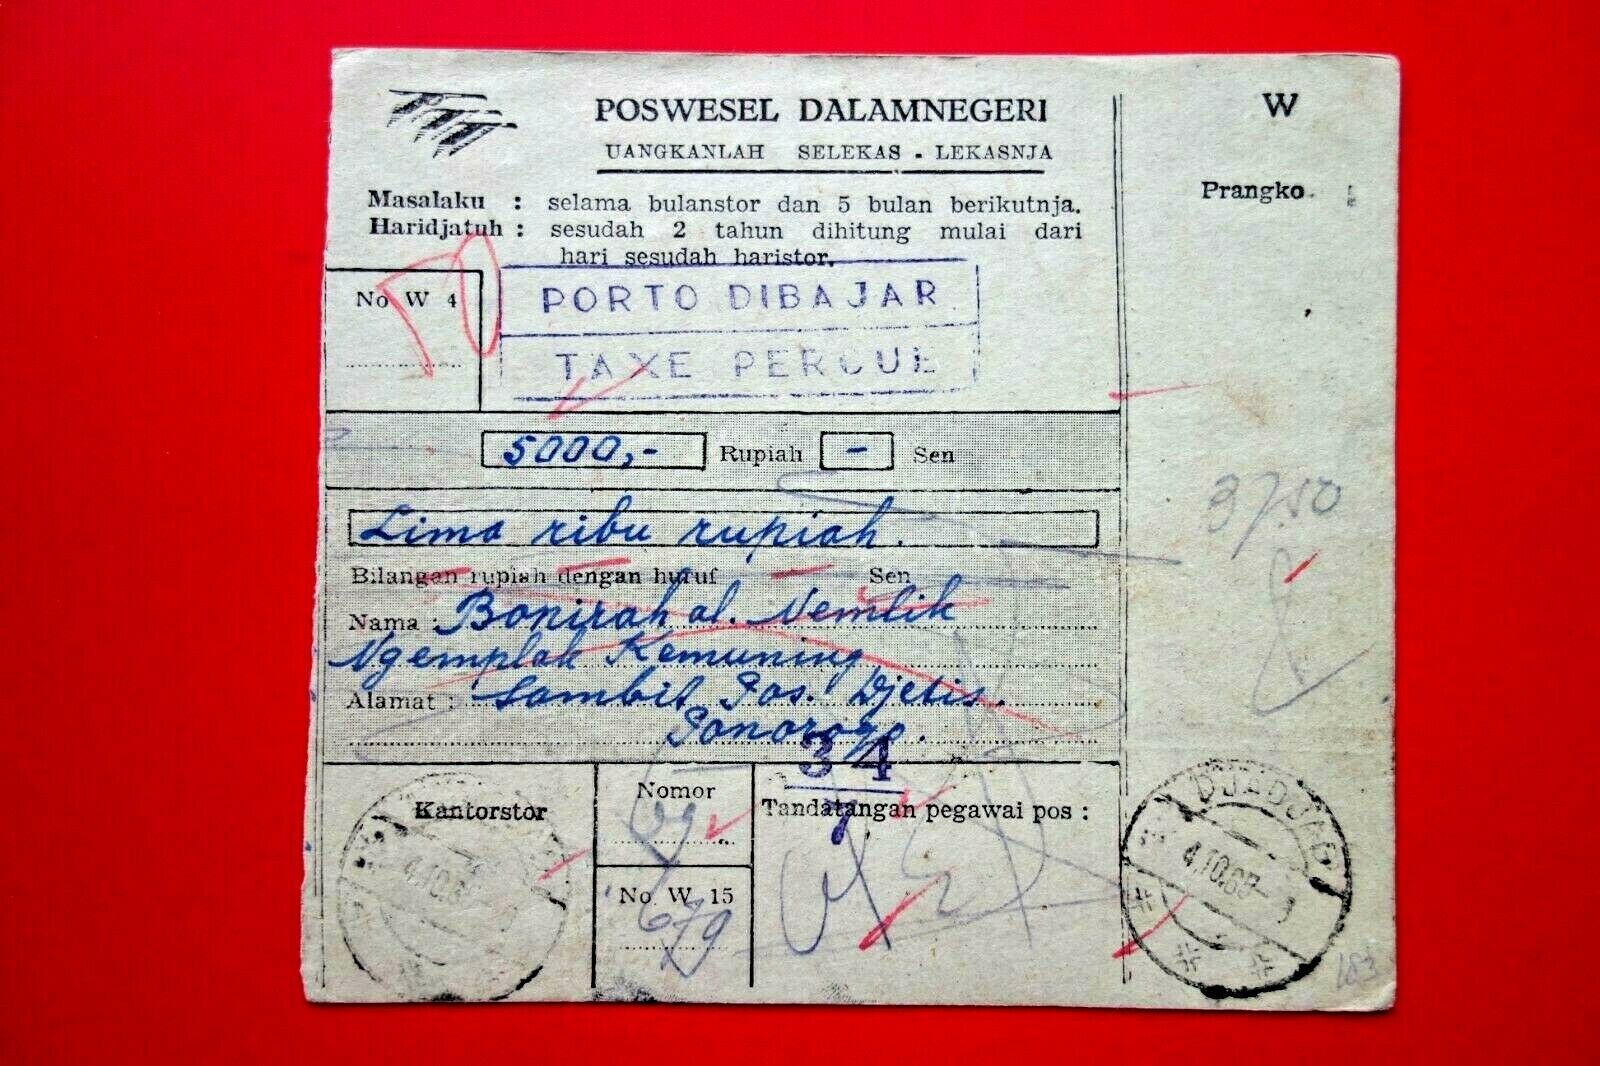 POSWESEL DALAMNEGERI
W
UANGKANLAH SELEKAS - LEKASNJA
Prangko
Masalaku : selama bulanstor dan 5 bulan berikutnja.
Haridjatuh : sesudah 2 tahun dihitung mulai dari
hari sesudah haristor.
No W 4
PORTO DIBAJAR
TAXE PERCUE
5000,- Rupiah - Sen
37.50
Lima ribu rupiah.
Bilangan rupiah dengan huruf Sen
Nama : Bonirah al. Nemlik
Ngemplak Kemuning
Alamat : Sambit Pos. Djetis.
Ponorogo.
34
Kantorstor
Nomor
Tandatangan pegawai pos :
No W 15
679
4.10.6
4.10.6
183